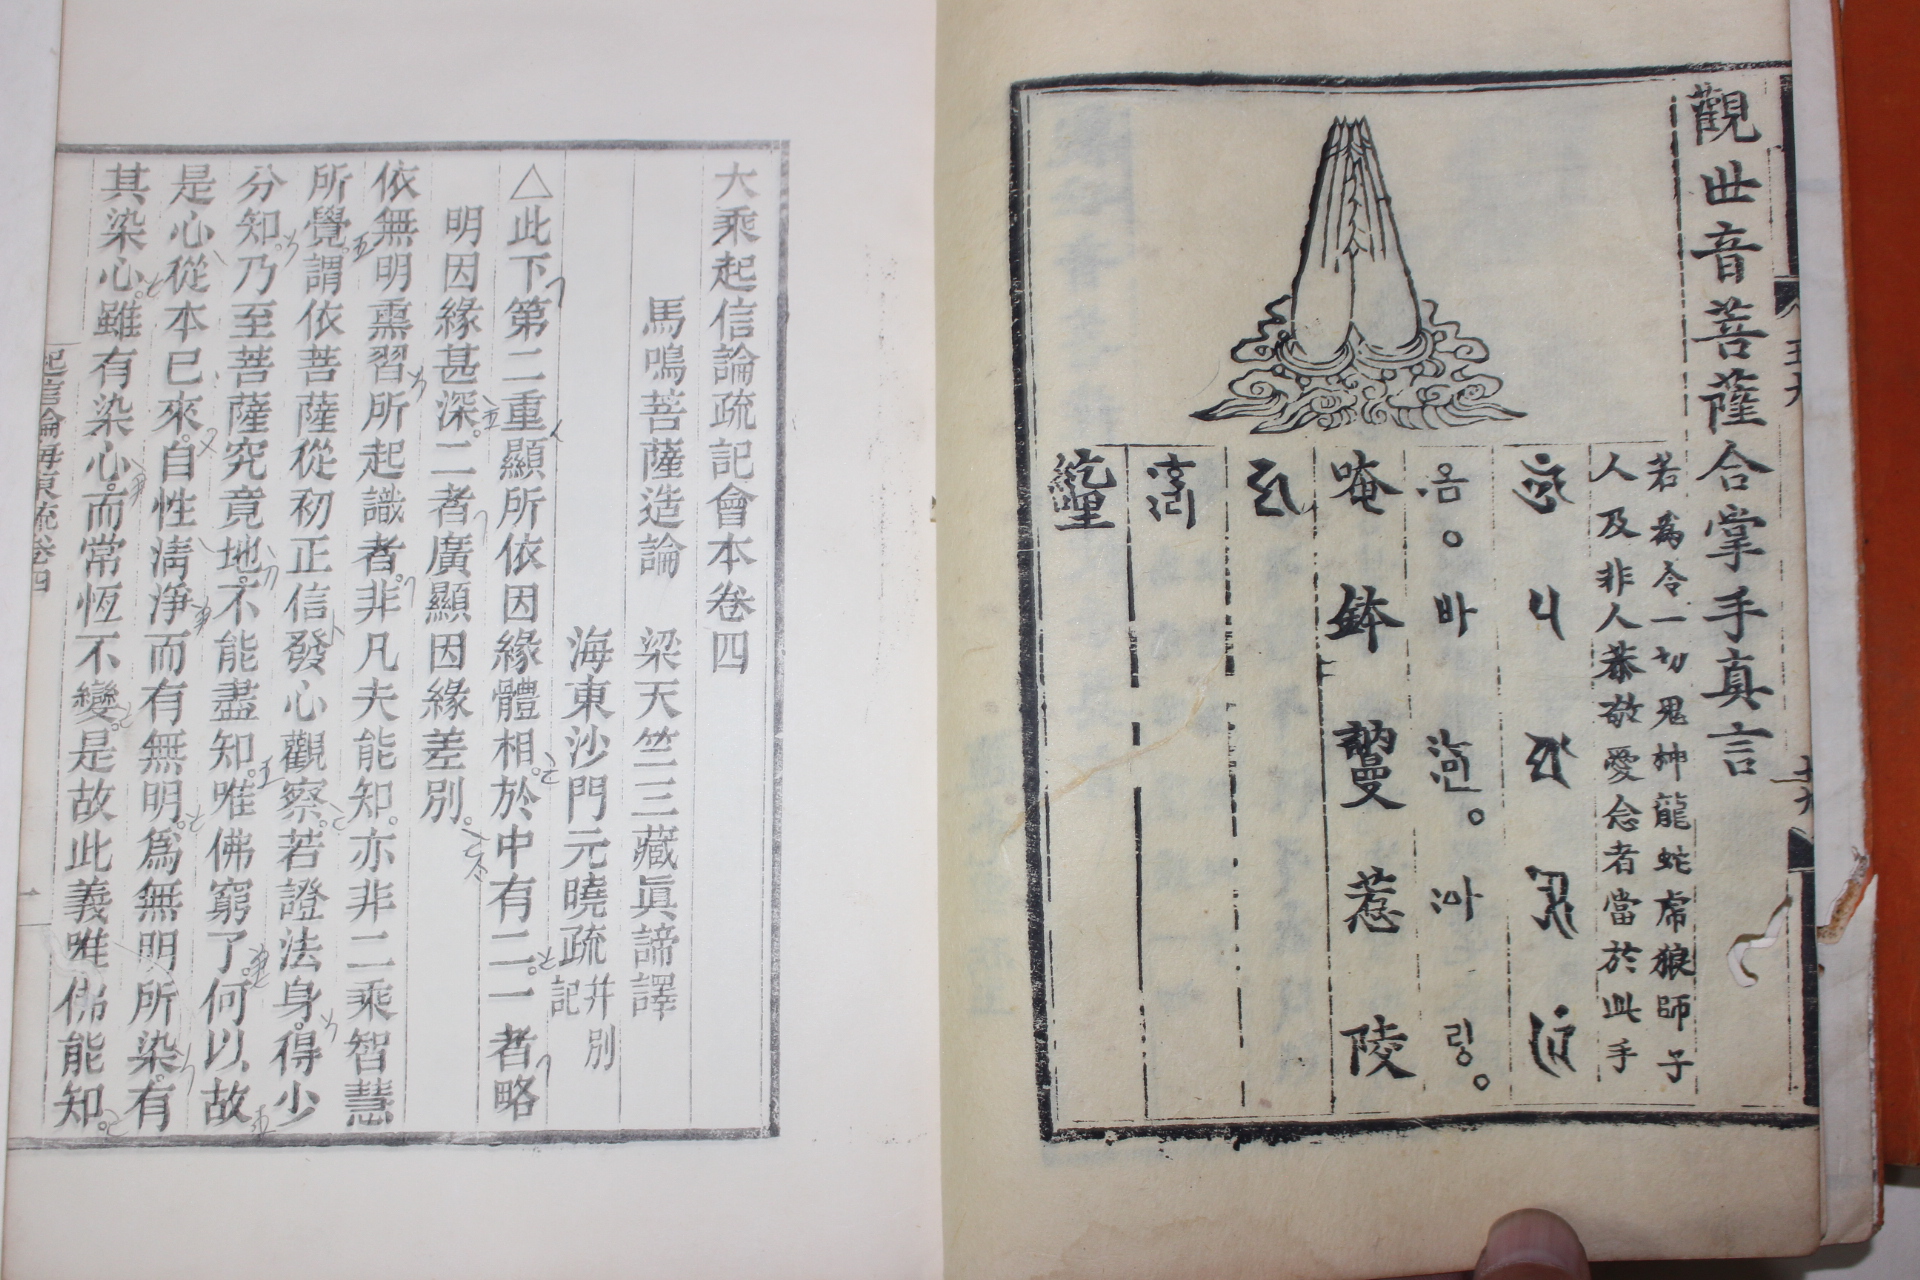 觀世音菩薩合掌手真言
若為令一切鬼神龍蛇虎狼師子
人及非人恭敬愛念者當於此手
옴。바 ᅌᅡ。 링。
唵 鉢 惹 陵
大乘起信論疏記會本卷四
馬鳴菩薩造論 梁天竺三藏眞諦譯
海東沙門元曉疏并別記
△此下第二重顯所依因緣體相。於中有二。一者略
明因緣甚深。二者廣顯因緣差別。
依無明熏習所起識者。非凡夫能知。亦非二乘智慧
所覺。謂依菩薩從初正信發心觀察。若證法身。得少
分知。乃至菩薩究竟地。不能盡知。唯佛窮了。何以故
是心從本已來。自性淸淨而有無明。爲無明所染。有
其染心。雖有染心。而常恆不變。是故此義唯佛能知。
起信論海東疏卷四
一